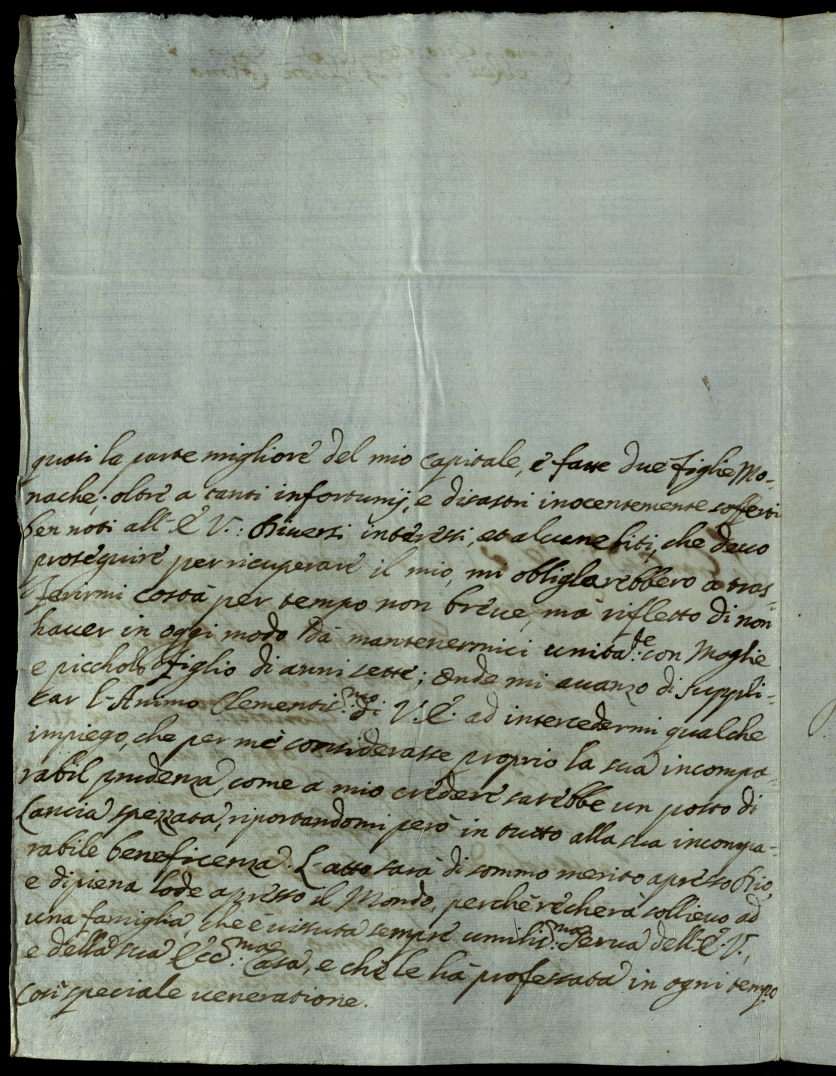 quasi la parte migliore del mio capitale, e fatte due figlie Mo-
nache; oltre a tanti infortunij, e disastri inocentemente sofferti
ben noti all'E. V.: Diversi interessi, et alcune liti, che devo
proseguire per ricuperare il mio, mi obligarebbero a tras-
ferirmi costà per tempo non breve, mà rifletto di non
haver in oggi modo dà mantenermici unitam.te con Moglie
e piccholo figlio di anni sette; Onde mi avanzo di suppli-
car l'Animo Clementis.mo di V.E. ad intercedermi qualche
impiego, che per mè considerasse proprio la sua incompa-
rabil prudenza, come a mio credere sarebbe un posto di
Lancia spezzata, riportandomi però in tutto alla sua incompa-
rabile beneficenza. L'atto sarà di sommo merito apresso Dio,
e di piena lode apresso il Mondo, perchè recherà sollievo ad
una famiglia, che è vissuta sempre umilis.ma Serva dell'E.V.,
e della sua Ecc.ma Casa, e che le hà professata in ogni tempo
così speciale veneratione.